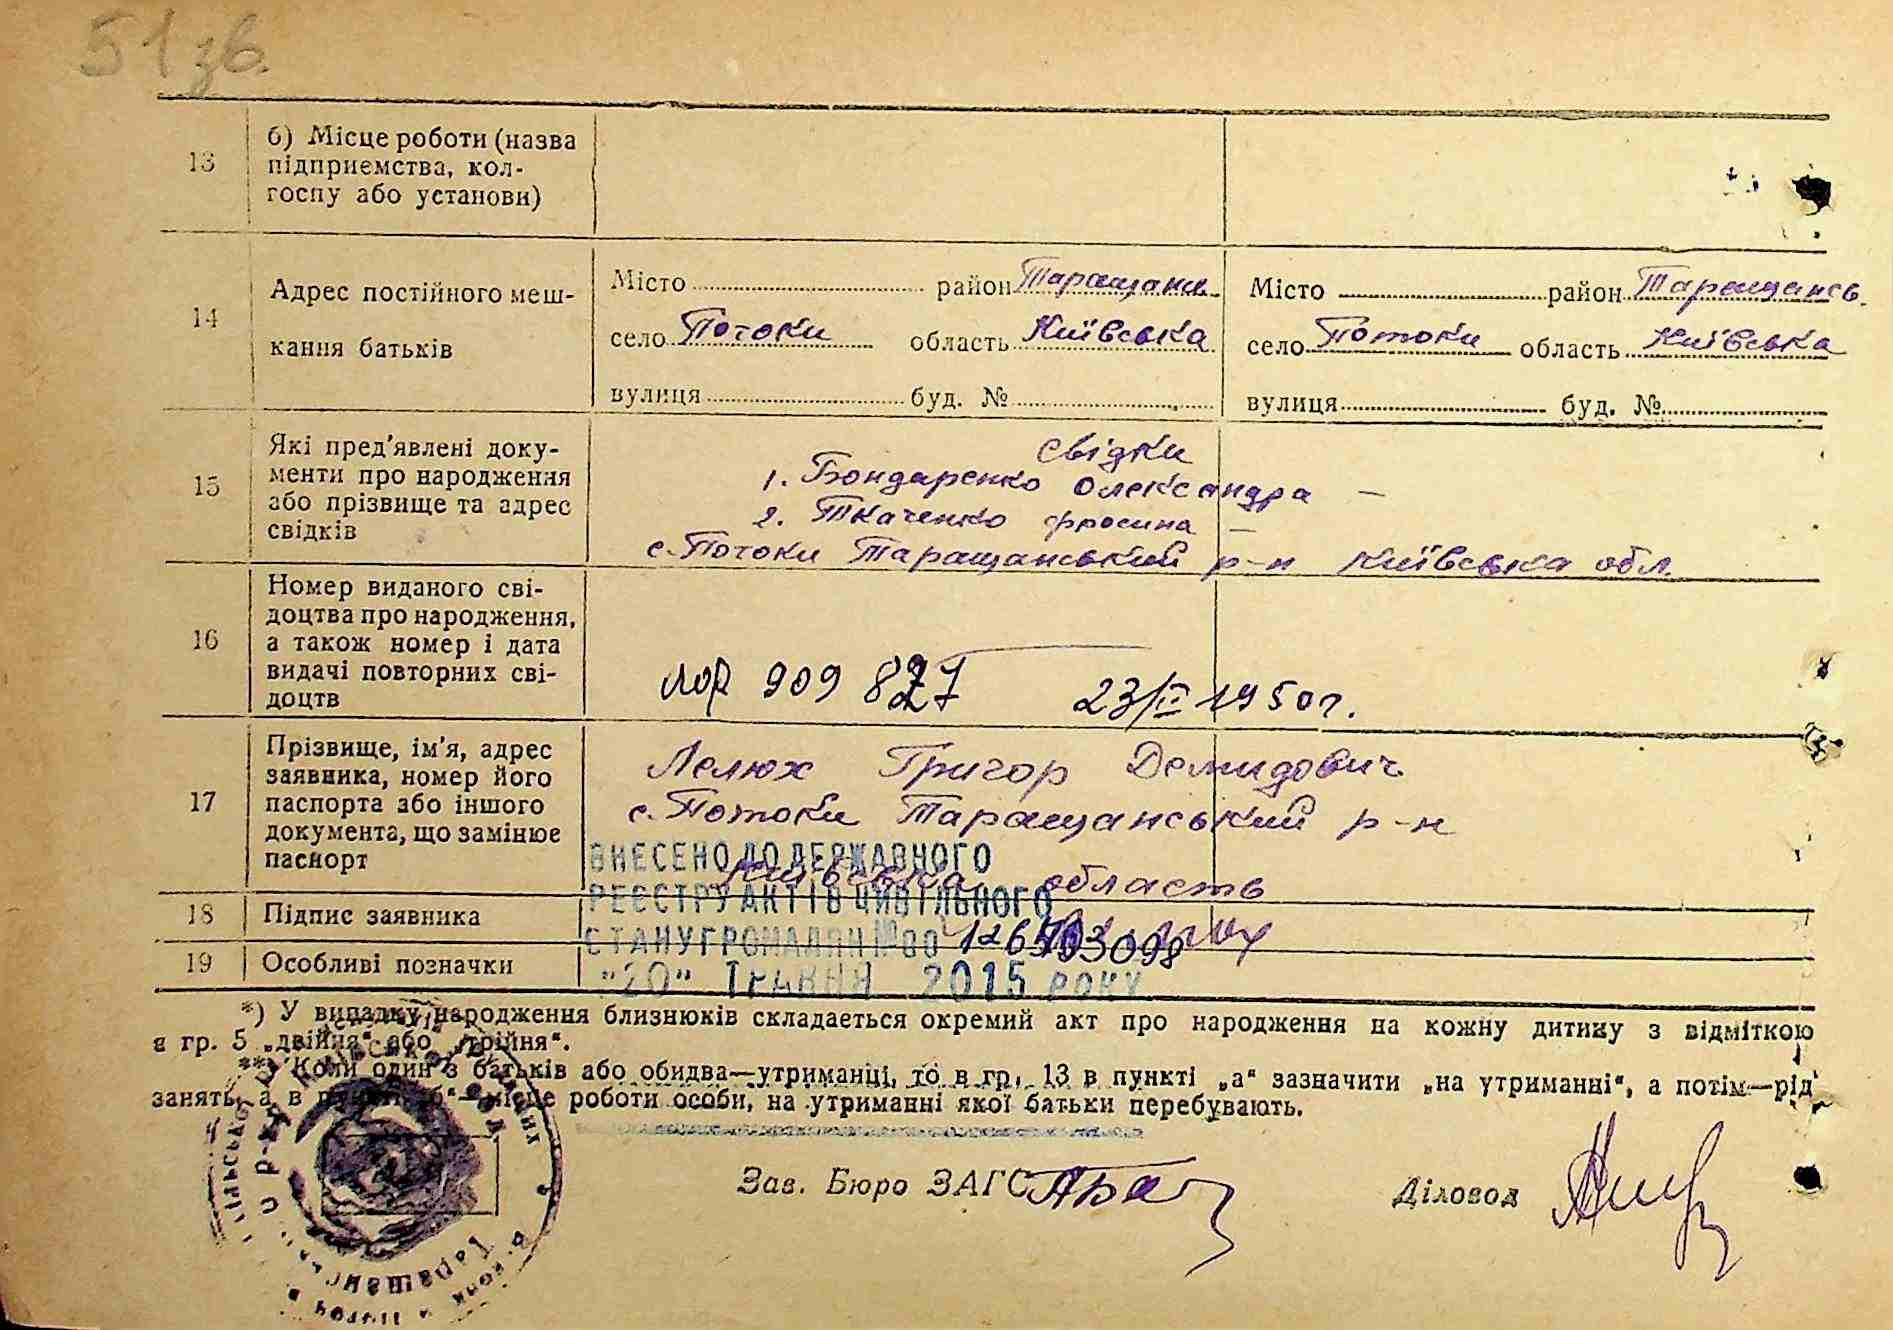 51 зв.
13
б) Місце роботи (назва
підприємства, кол-
госпу або установи)
14
Адрес постійного меш-
кання батьків
Місто район Таращанськ
село Потоки область Київська
вулиця буд. №
Місто район Таращанськ.
село Потоки область Київська
вулиця буд. №
15
Які пред'явлені доку-
менти про народження
або прізвище та адрес
свідків
свідки
1. Бондаренко Олександра –
2. Ткаченко Фросина –
с. Потоки Таращанський р-н Київська обл.
16
Номер виданого сві-
доцтва про народження,
а також номер і дата
видачі повторних сві-
доцтв
909 827 23/II 1950 г.
17
Прізвище, ім'я, адрес
заявника, номер його
паспорта або іншого
документа, що замінює
паспорт
Лелюх Григор Демидович
с. Потоки Таращанський р-н
Київська область
ВНЕСЕНО ДО ДЕРЖАВНОГО
РЕЄСТРУ АКТІВ ЦИВІЛЬНОГО
СТАНУ ГРОМАДЯН № 00
"20" ТРАВНЯ 2015 РОКУ
18
Підпис заявника
19
Особливі позначки
*) У випадку народження близнюків складається окремий акт про народження на кожну дитину з відміткою
в гр. 5 „двійня“ або „трійня“.
**) Коли один з батьків або обидва—утриманці, то в гр. 13 в пункті „а“ зазначити „на утриманні“, а потім—рід
занять, а в пункті „б“—місце роботи особи, на утриманні якої батьки перебувають.
Зав. Бюро ЗАГС
Діловод